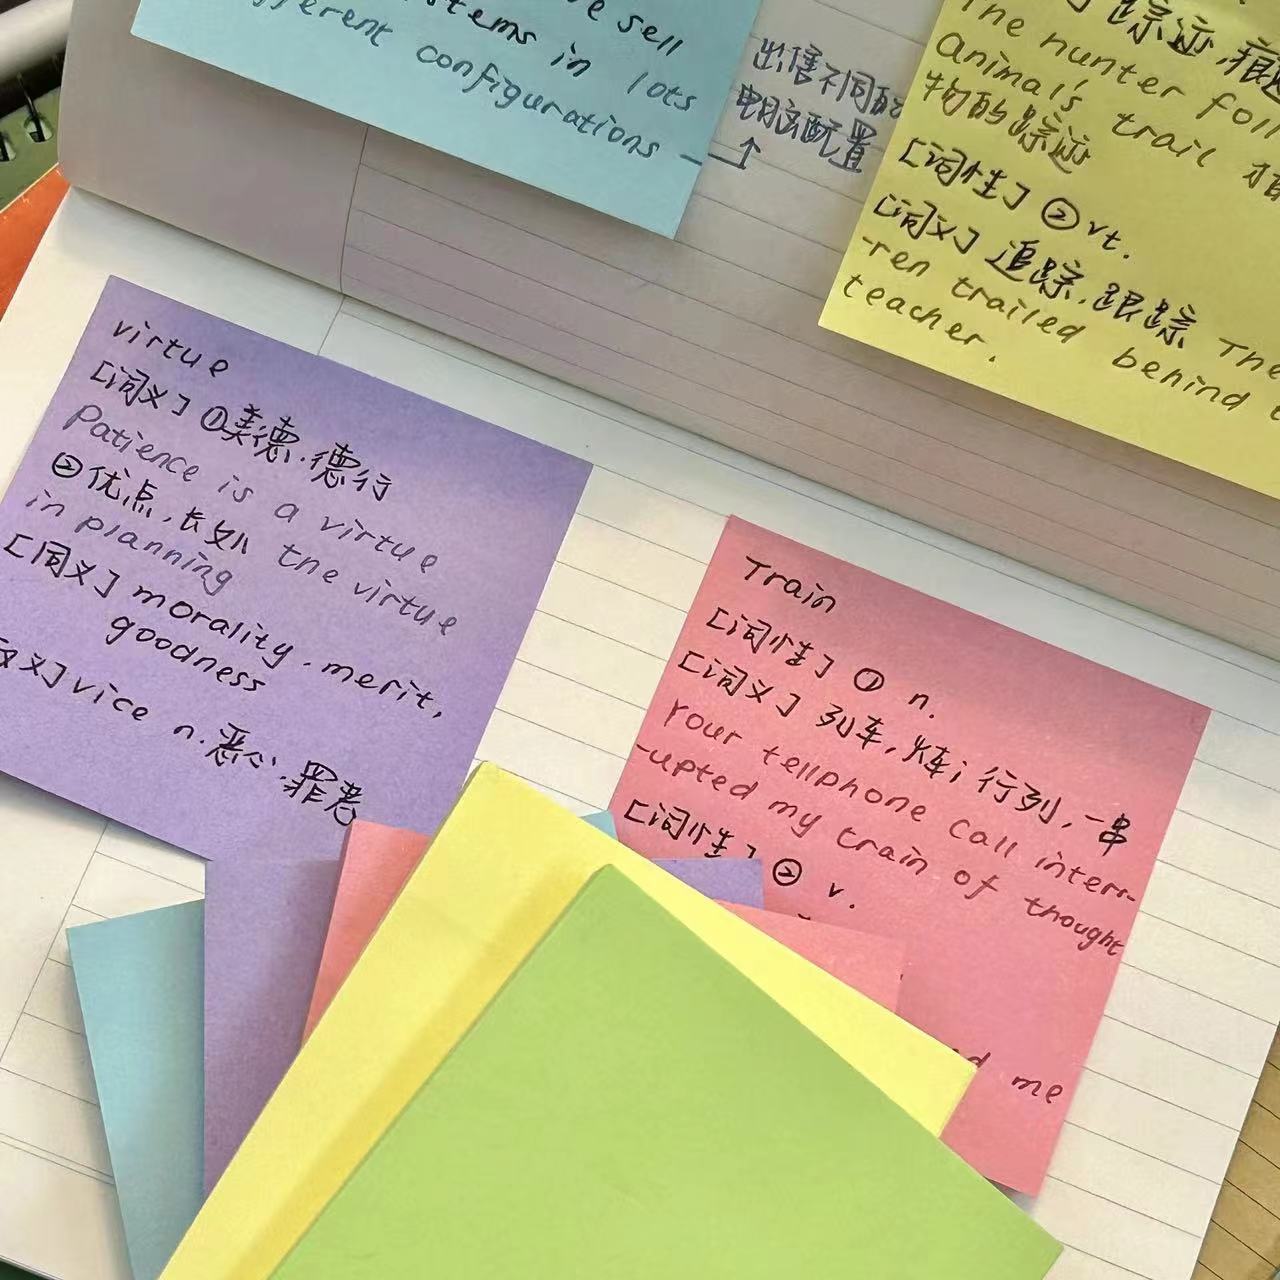 e sell
stems in lots
fferent configurations
出售不同的
电脑配置
踪迹,痕迹
The hunter foll
animal's trail 猎
物的踪迹
[词性] ② vt.
[词义] 追踪,跟踪 The
-ren trailed behind t
teacher.
virtue
[词义] ①美德.德行
Patience is a virtue
②优点,长处 the virtue
in planning
[同义] morality.merit,
goodness
反义] vice n.恶心.罪恶
Train
[词性] ① n.
[词义] 列车,火车; 行列,一串
Your tellphone call interr-
-upted my train of thought
[词性] ② v.
d me